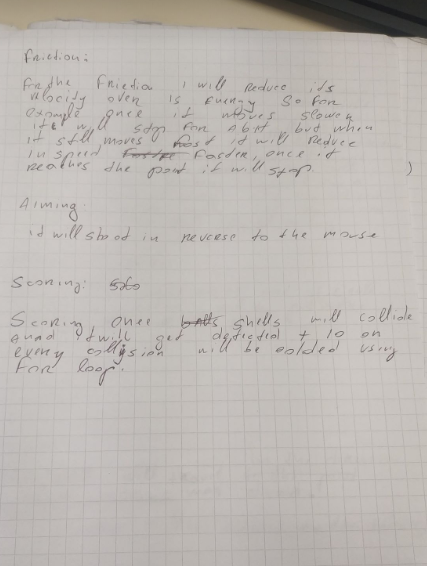 Friction:
For the Friction I will reduce its
velocity over is every So for
example once it moves slower
it will stop for abit but when
it still moves fast it will reduce
in speed faster, once it
reaches the point it will stop.
Aiming
it will stood in reverse to the mouse
Scoring:
Scoring once balls shells will collide
it will get detected + 10 on
every collision will be added using
for loop.